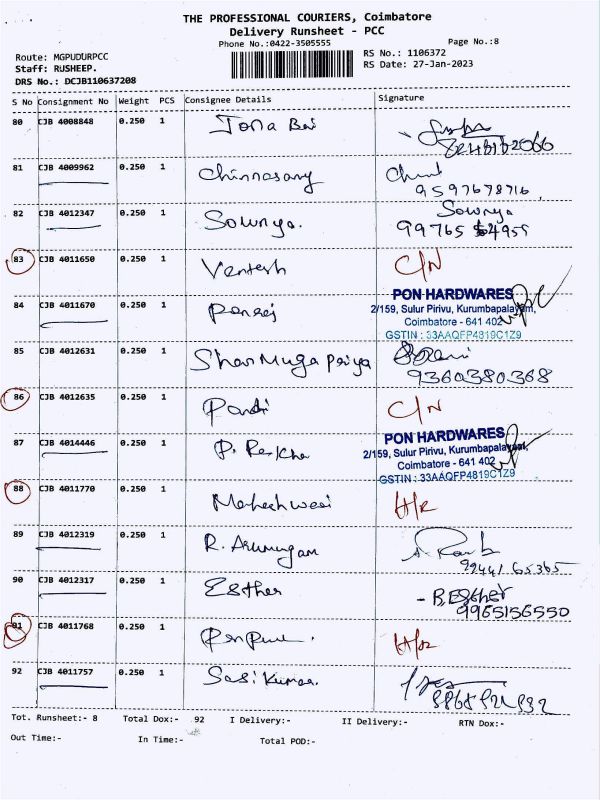 THE PROFESSIONAL COURIERS, Coimbatore
Delivery Runsheet - PCC
Phone No.:0422-3505555
Page No.:8
Route: MGPUDURPCC
RS No.: 1106372
Staff: RUSHEEP.
RS Date: 27-Jan-2023
DRS No.: DCJB110637208
S No Consignment No Weight PCS Consignee Details Signature
80 CJB 4008848 0.250 1 Jona Bai
81 CJB 4009962 0.250 1 Chinnasamy
9597678716
82 CJB 4012347 0.250 1 Sowmya. Sowmya
83 CJB 4011650 0.250 1 Ventesh C/N
PON HARDWARES
2/159, Sulur Pirivu, Kurumbapalayam,
84 CJB 4011670 0.250 1
Coimbatore - 641 402
GSTIN : 33AAQFP4819C1Z9
85 CJB 4012631 0.250 1 ShanMuga Priya
9360380368
86 CJB 4012635 0.250 1 Pandi C/N
PON HARDWARES
87 CJB 4014446 0.250 1 P. Rekha
2/159, Sulur Pirivu, Kurumbapalayam,
Coimbatore - 641 402
GSTIN : 33AAQFP4819C1Z9
88 CJB 4011770 0.250 1 Maheshwari
89 CJB 4012319 0.250 1 R. Arumugam
99441 65365
90 CJB 4012317 0.250 1 Esther - B.Esther
9965156550
91 CJB 4011768 0.250 1
92 CJB 4011757 0.250 1 Sasikumar.
Tot. Runsheet:- 8 Total Dox:- 92 I Delivery:- II Delivery:- RTN Dox:-
Out Time:- In Time:- Total POD:-